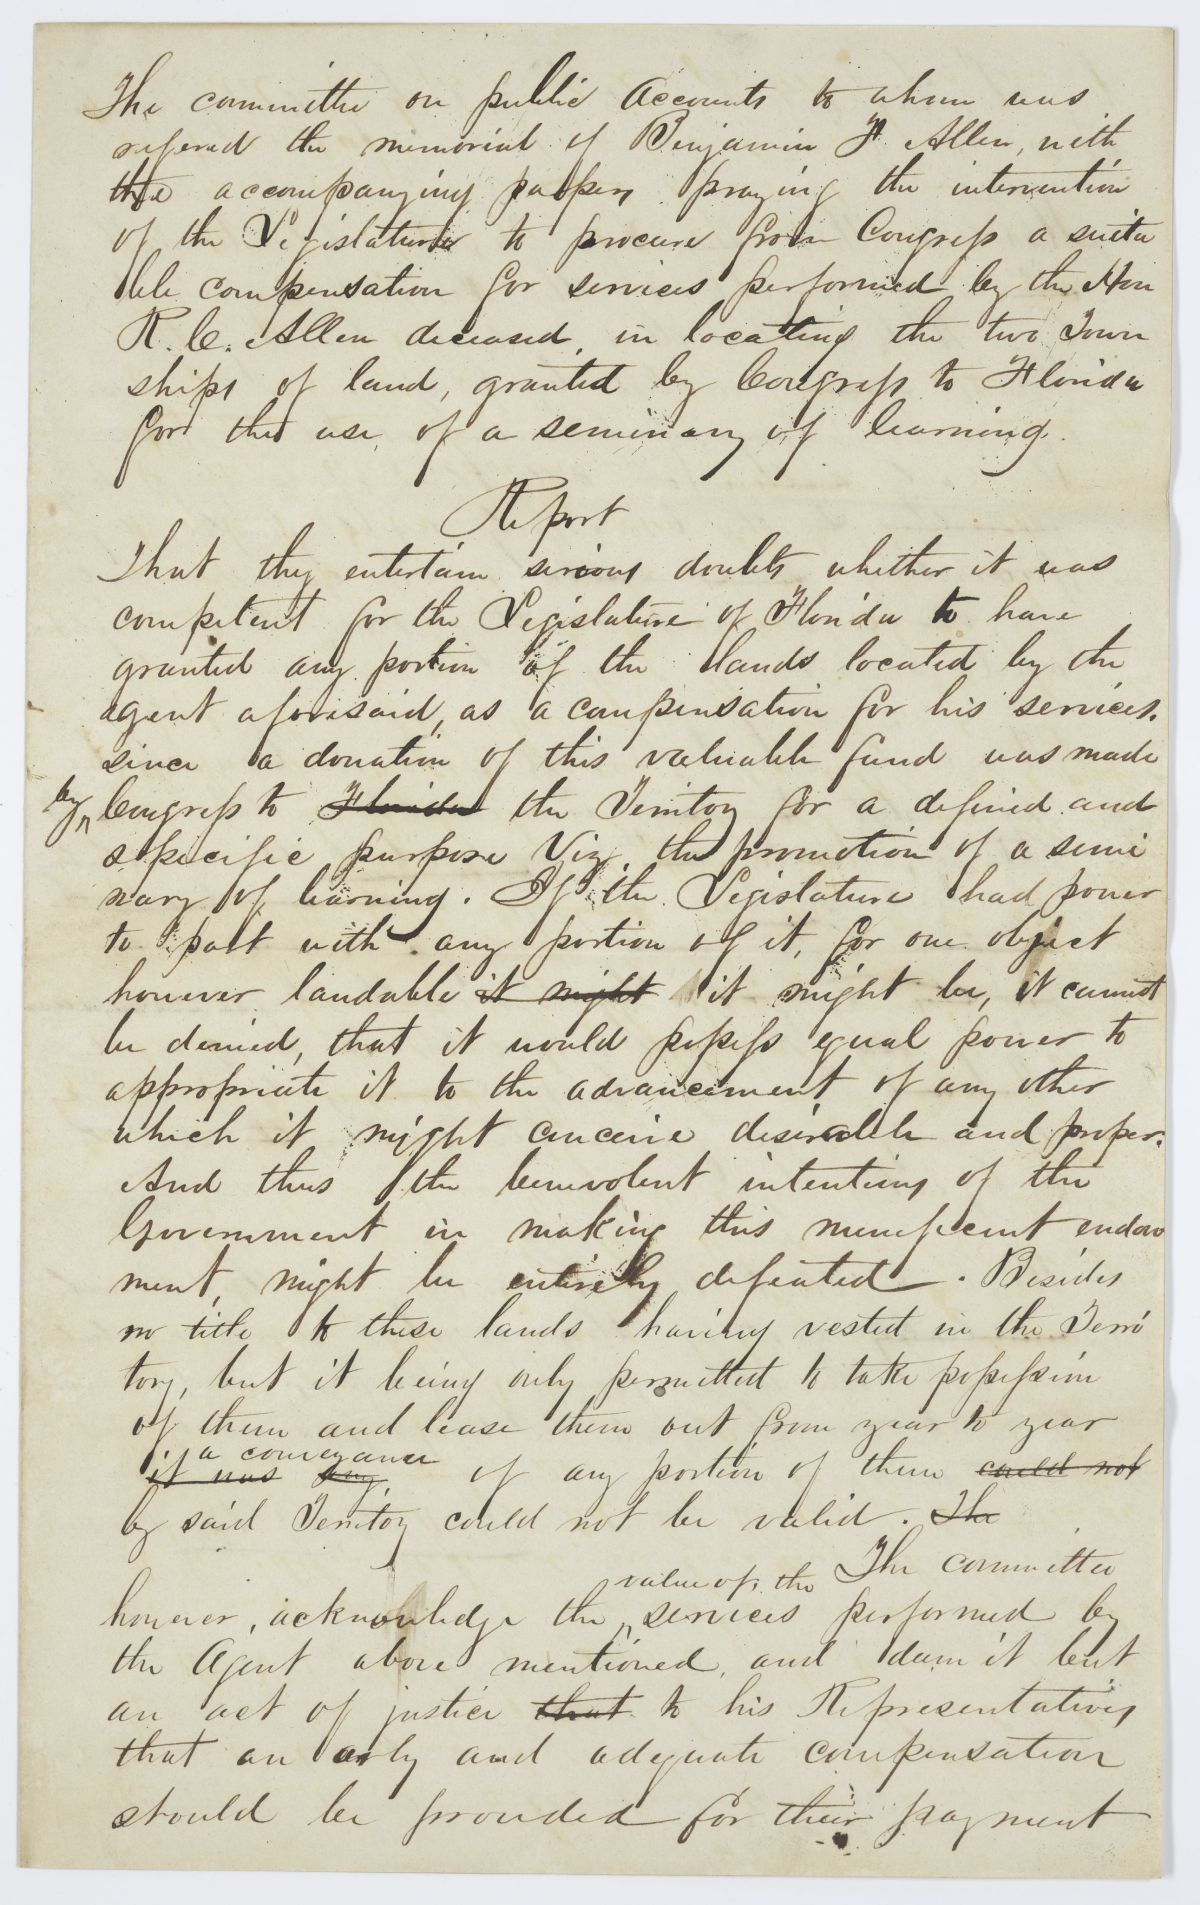 The committee on public Accounts to whom was
refered the memorial of Benjamin F. Allen, with
the accompanying papers praying the intervention
of the Legislature to procure from Congress a suita
ble compensation for services performed by the Hon
R. C. Allen deceased, in locating the two Town
ships of land, granted by Congress to Florida
for the use, of a seminary of learning.
Report
That they entertain serious doubts whether it was
competent for the Legislature of Florida to have
granted any portion of the lands located by the
agent aforesaid, as a compensation for his services.
since a donation of this valuable fund was made
by Congress to Florida the Territory for a defined and
specific purpose Viz, the promotion of a semi
nary of learning. If the Legislature had power
to part with any portion of it, for one object
however laudable it might it might be, it cannot
be denied, that it would possess equal power to
appropriate it to the advancement of any other
which it might conceive desirable and proper.
And thus the benevolent intentions of the
Government in making this munificent endow
ment, might be entirely defeated. Besides
no title to these lands having vested in the Terri
tory, but it being only permitted to take possession
of them and lease them out from year to year
a conveyance
it was any, of any portion of them could not
by said Territory could not be valid. The
The committee
value of the
however, acknowledge the services performed by
the Agent above mentioned, and dam it but
an act of justice that to his Representatives
that an arly and adequate compensation
should be provided for their payment